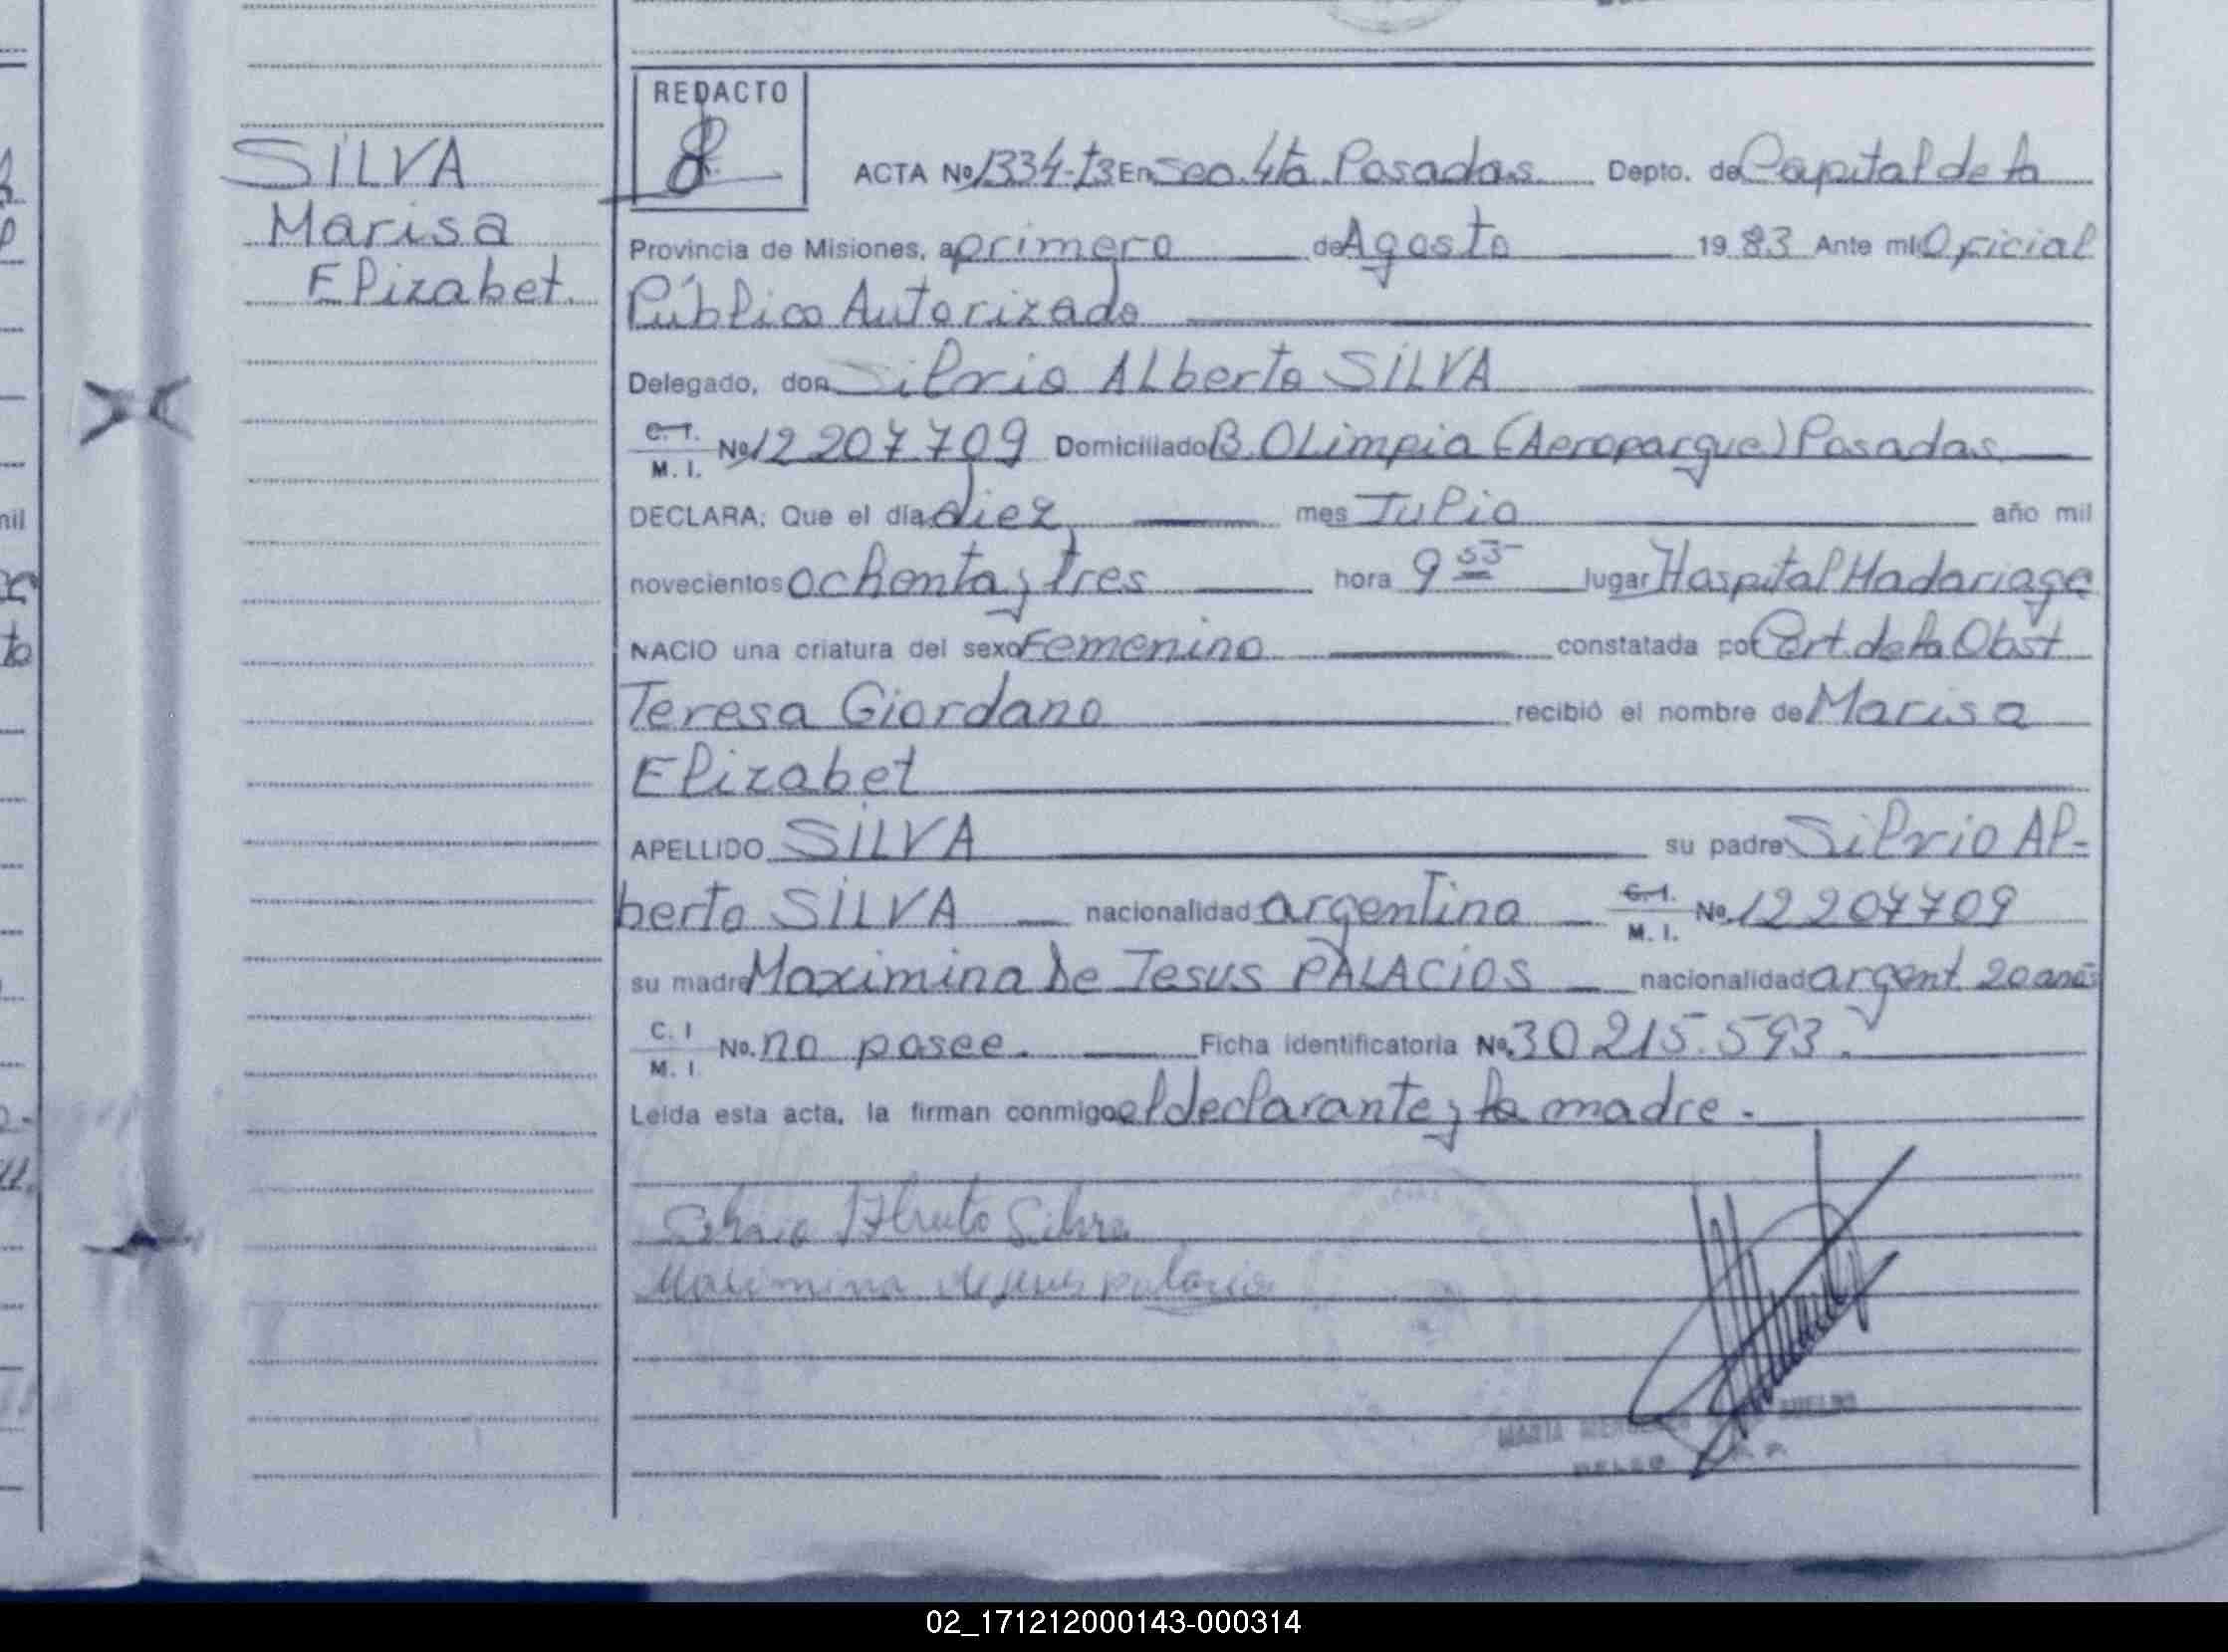 REDACTO
SILVA
Marisa
Elizabet.
ACTA Nº 1334-T3 En Sec. 4ta. Posadas Depto. de Capital de la
Provincia de Misiones, a primero de Agosto 1983 Ante mí Oficial
Público Autorizado
Delegado, don Silvio Alberto SILVA
C.I. M.I. Nº 12207709 Domiciliado B. Olimpia (Aeroparque) Posadas
DECLARA: Que el día diez mes Julio año mil
novecientos ochenta y tres hora 9 53 lugar Hospital Madariaga
NACIO una criatura del sexo Femenino constatada por Cert. de la Obst
Teresa Giordano recibió el nombre de Marisa
Elizabet
APELLIDO SILVA su padre Silvio Al-
berto SILVA nacionalidad argentina C.I. M.I. No. 12207709
su madre Maximina De Jesus PALACIOS nacionalidad argent. 20 años
C.I M.I. No. no posee. Ficha identificatoria No. 30 215.593.
Leída esta acta, la firman conmigo el declarante y la madre.
Silvio Alberto Silva
Maximina de jesus palacio
MARIA
02_171212000143-000314